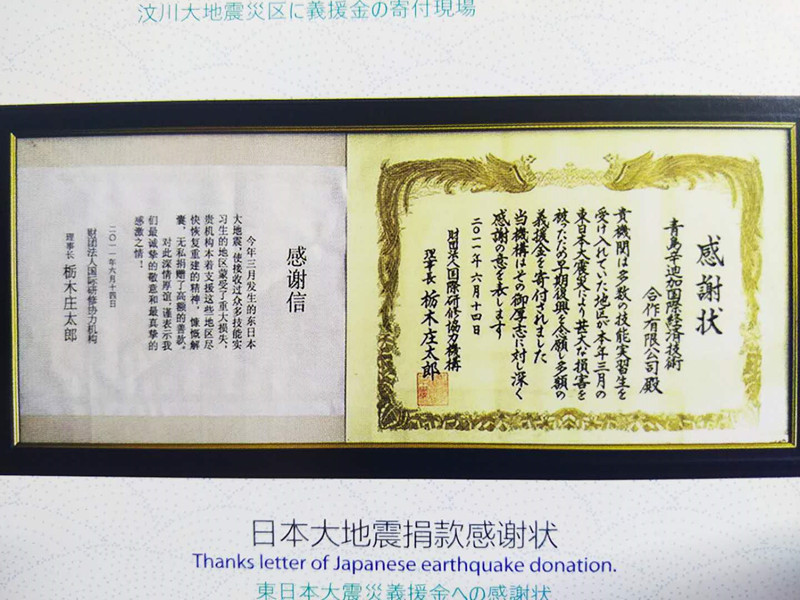 汶川大地震災区に義援金の寄付現場
感謝状
青島辛迪加国際経済技術
合作有限公司 殿
貴機関は多数の技能実習生を
受け入れていた地区が本年三月の
東日本大震災により甚大な損害を
被ったため早期復興を念願し多額の
義援金を寄付されました
当機構はその御厚志に対し深く
感謝の意を表します
二〇一一年六月十四日
財団法人国際研修協力機構
理事長 栃木庄太郎
感谢信
今年三月发生的东日本
大地震，使接收过众多技能实
习生的地区蒙受了重大损失，
贵机构本着支援这些地区尽
快恢复重建的精神，慷慨解
囊，无私捐赠了高额的善款。
对此深情厚谊，谨表示我
们最诚挚的敬意和最真挚的
感激之情！
二〇一一年六月十四日
财团法人国际研修协力机构
理事长 栃木庄太郎
日本大地震捐款感谢状
Thanks letter of Japanese earthquake donation.
東日本大震災義援金への感謝状